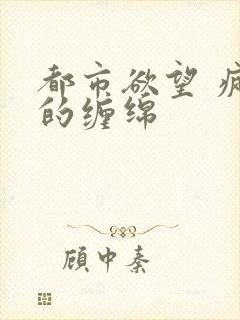 都市欲望
的缠绵
顾中秦